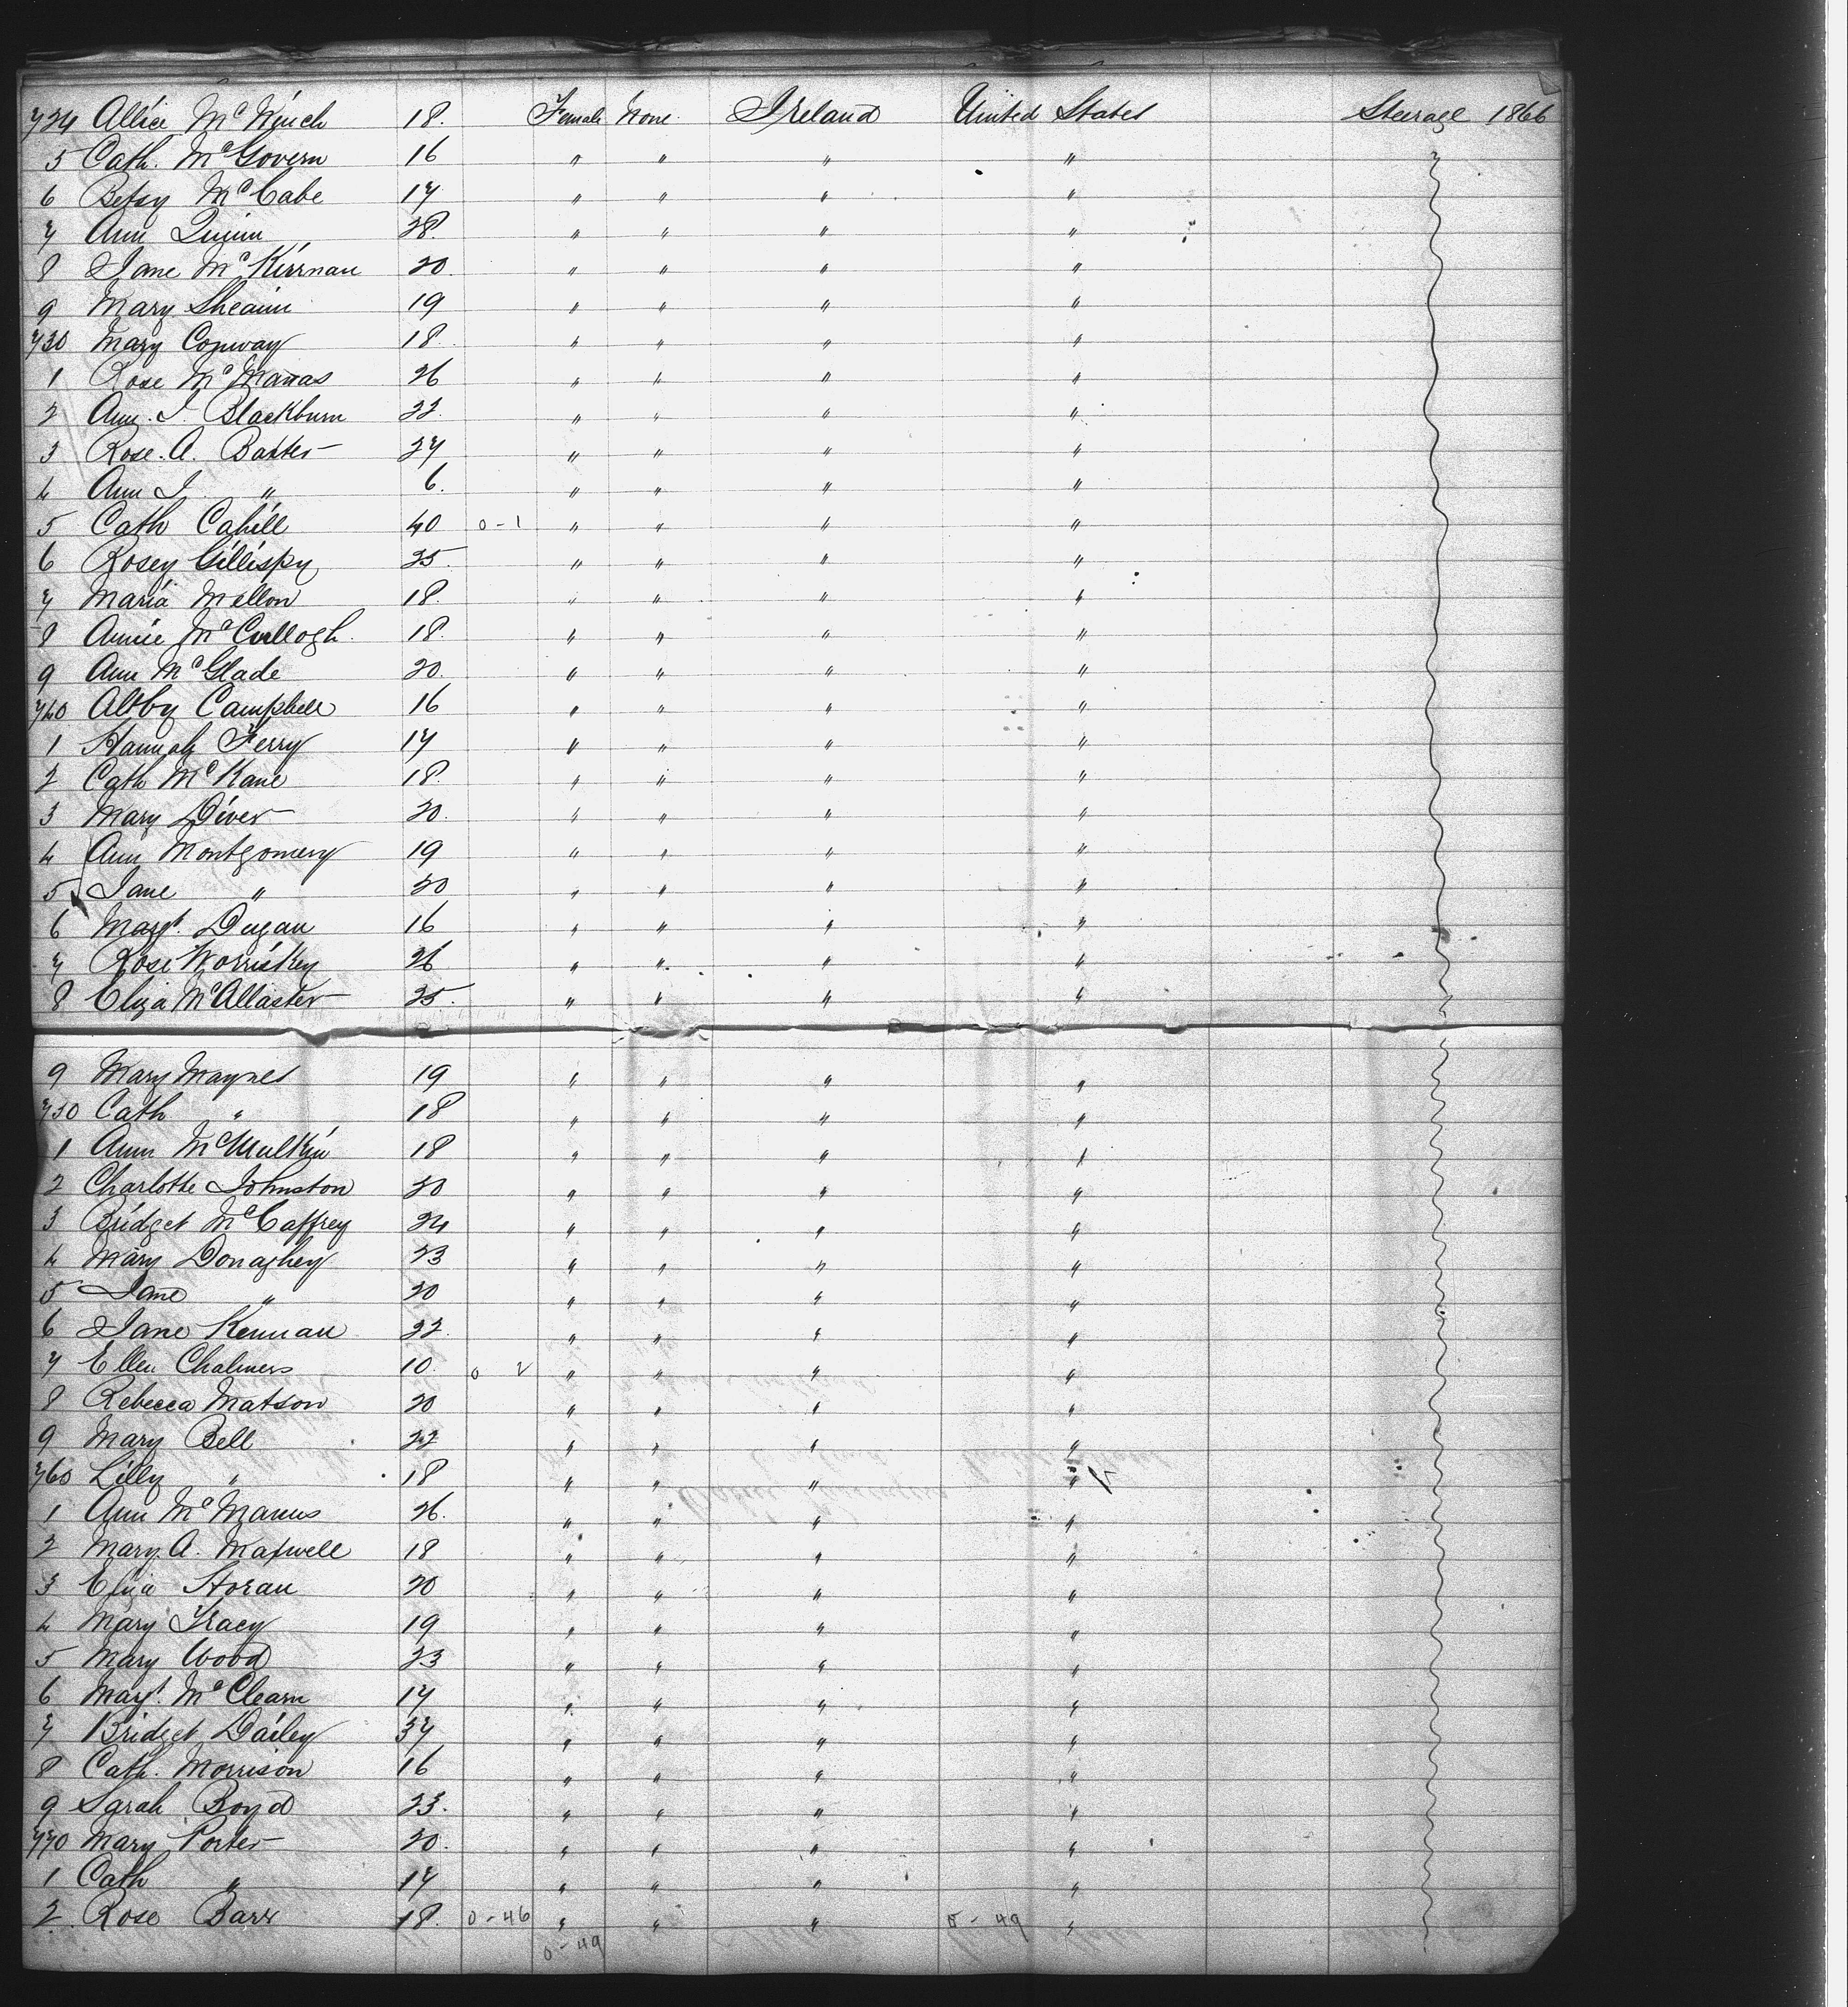 724 Allice McNinch 18. Female None. Ireland United States Steerage 1866
5 Cath. McGovern 16 " " " "
6 Betsy McCabe 17 " " " "
7 Ann Quinn 28. " " " "
8 Jane McKirrnan 20. " " " "
9 Mary Sheain 19 " " " "
730 Mary Conway 18. " " " "
1 Rose McManas 26 " " " "
2 Ann. J. Blackburn 22. " " " "
3 Rose. A. Baxter 27 " " " "
4 Ann J " 6. " " " "
5 Cath Cahill 40 0-1 " " " "
6 Rosey Gillispy 25. " " " "
7 Maria Mellon 18. " " " "
8 Annie McCullogh. 18. " " " "
9 Ann McGlade 20. " " " "
740 Abby Campbell 16 " " " "
1 Hannah Ferry 17 " " " "
2 Cath McKane 18. " " " "
3 Mary Diver 20. " " " "
4 Ann Montgomery 19 " " " "
5 Jane " 20 " " " "
6 Margt. Dugan 16 " " " "
7 Rose Worriskey 26 " " " "
8 Eliza McAllaster 25. " " " "
9 Mary Maynes 19 " " " "
750 Cath " 18 " " " "
1 Ann McMulkin 18 " " " "
2 Charlotte Johnston 20 " " " "
3 Bridget McCaffrey 24 " " " "
4 Mary Donaghey 23 " " " "
5 Jane " 20 " " " "
6 Jane Kernan 22. " " " "
7 Ellen Chalmers 10. 0 2 " " " "
8 Rebecca Matson 20 " " " "
9 Mary Bell 22 " " " "
760 Lilly " 18 " " " "
1 Ann McManus 26. " " " "
2 Mary A. Maxwell 18 " " " "
3 Eliza Horan 20 " " " "
4 Mary Tracy 19 " " " "
5 Mary Wood 23 " " " "
6 Margt. McClearn 17 " " " "
7 Bridget Dailey 37 " " " "
8 Cath. Morrison 16 " " " "
9 Sarah Boyd 23. " " " "
770 Mary Porter 20. " " " "
1 Cath " 17 " " " "
2. Rose Barr 18. 0-46 " " " 0-49 "
0-49